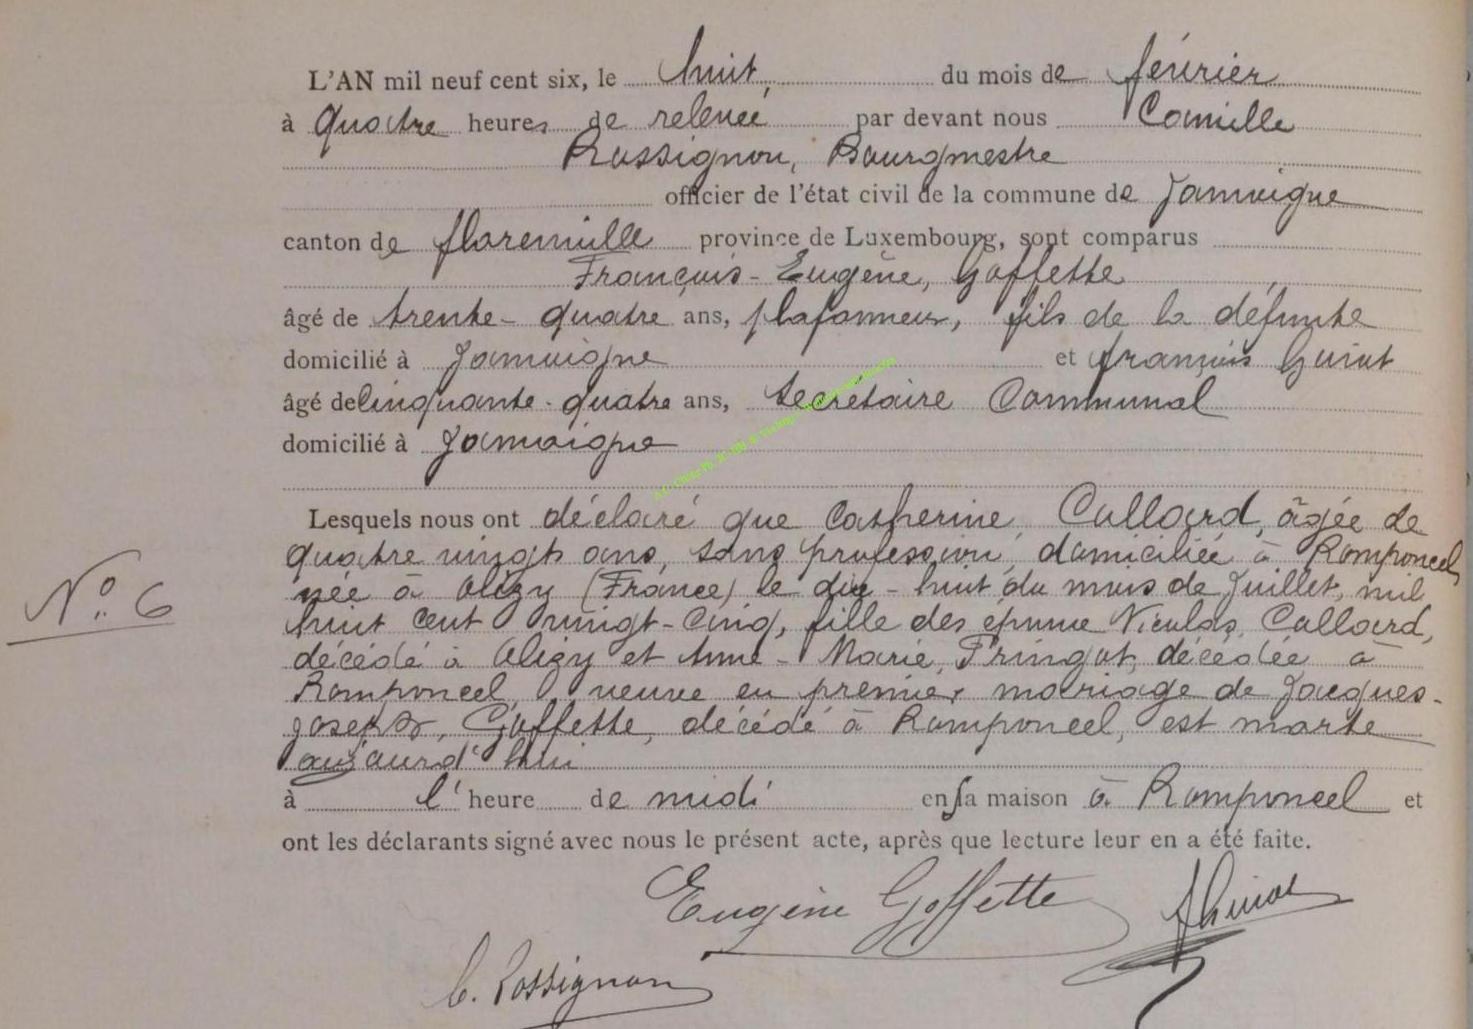 L'AN mil neuf cent six, le huit, du mois de février
à quatre heures de relevée par devant nous Camille
Rossignon, Bourgmestre
officier de l'état civil de la commune de Jamoigne
canton de florenville province de Luxembourg, sont comparus
François-Eugène, Goffette
âgé de trente-quatre ans, plafonneur, fils de la défunte
domicilié à Jamoigne et françois
âgé de Cinquante-quatre ans, Secrétaire Communal
domicilié à Jamoigne
Lesquels nous ont déclaré que Catherine, Collard, âgée de
quatre vingt ans, sans profession, domiciliée à Romponcel,
née à (France) le dix-huit du mois de Juillet, mil
huit cent vingt-cinq, fille des époux Nicolas, Collard,
décédé à et Anne-Marie, décédée à
Romponcel, veuve en premier mariage de Jacques-
Joseph, Goffette, décédé à Romponcel, est morte
aujourd'hui
à l'heure de midi en sa maison à Romponcel et
ont les déclarants signé avec nous le présent acte, après que lecture leur en a été faite.
N° 6
Eugène Goffette
C. Rossignon